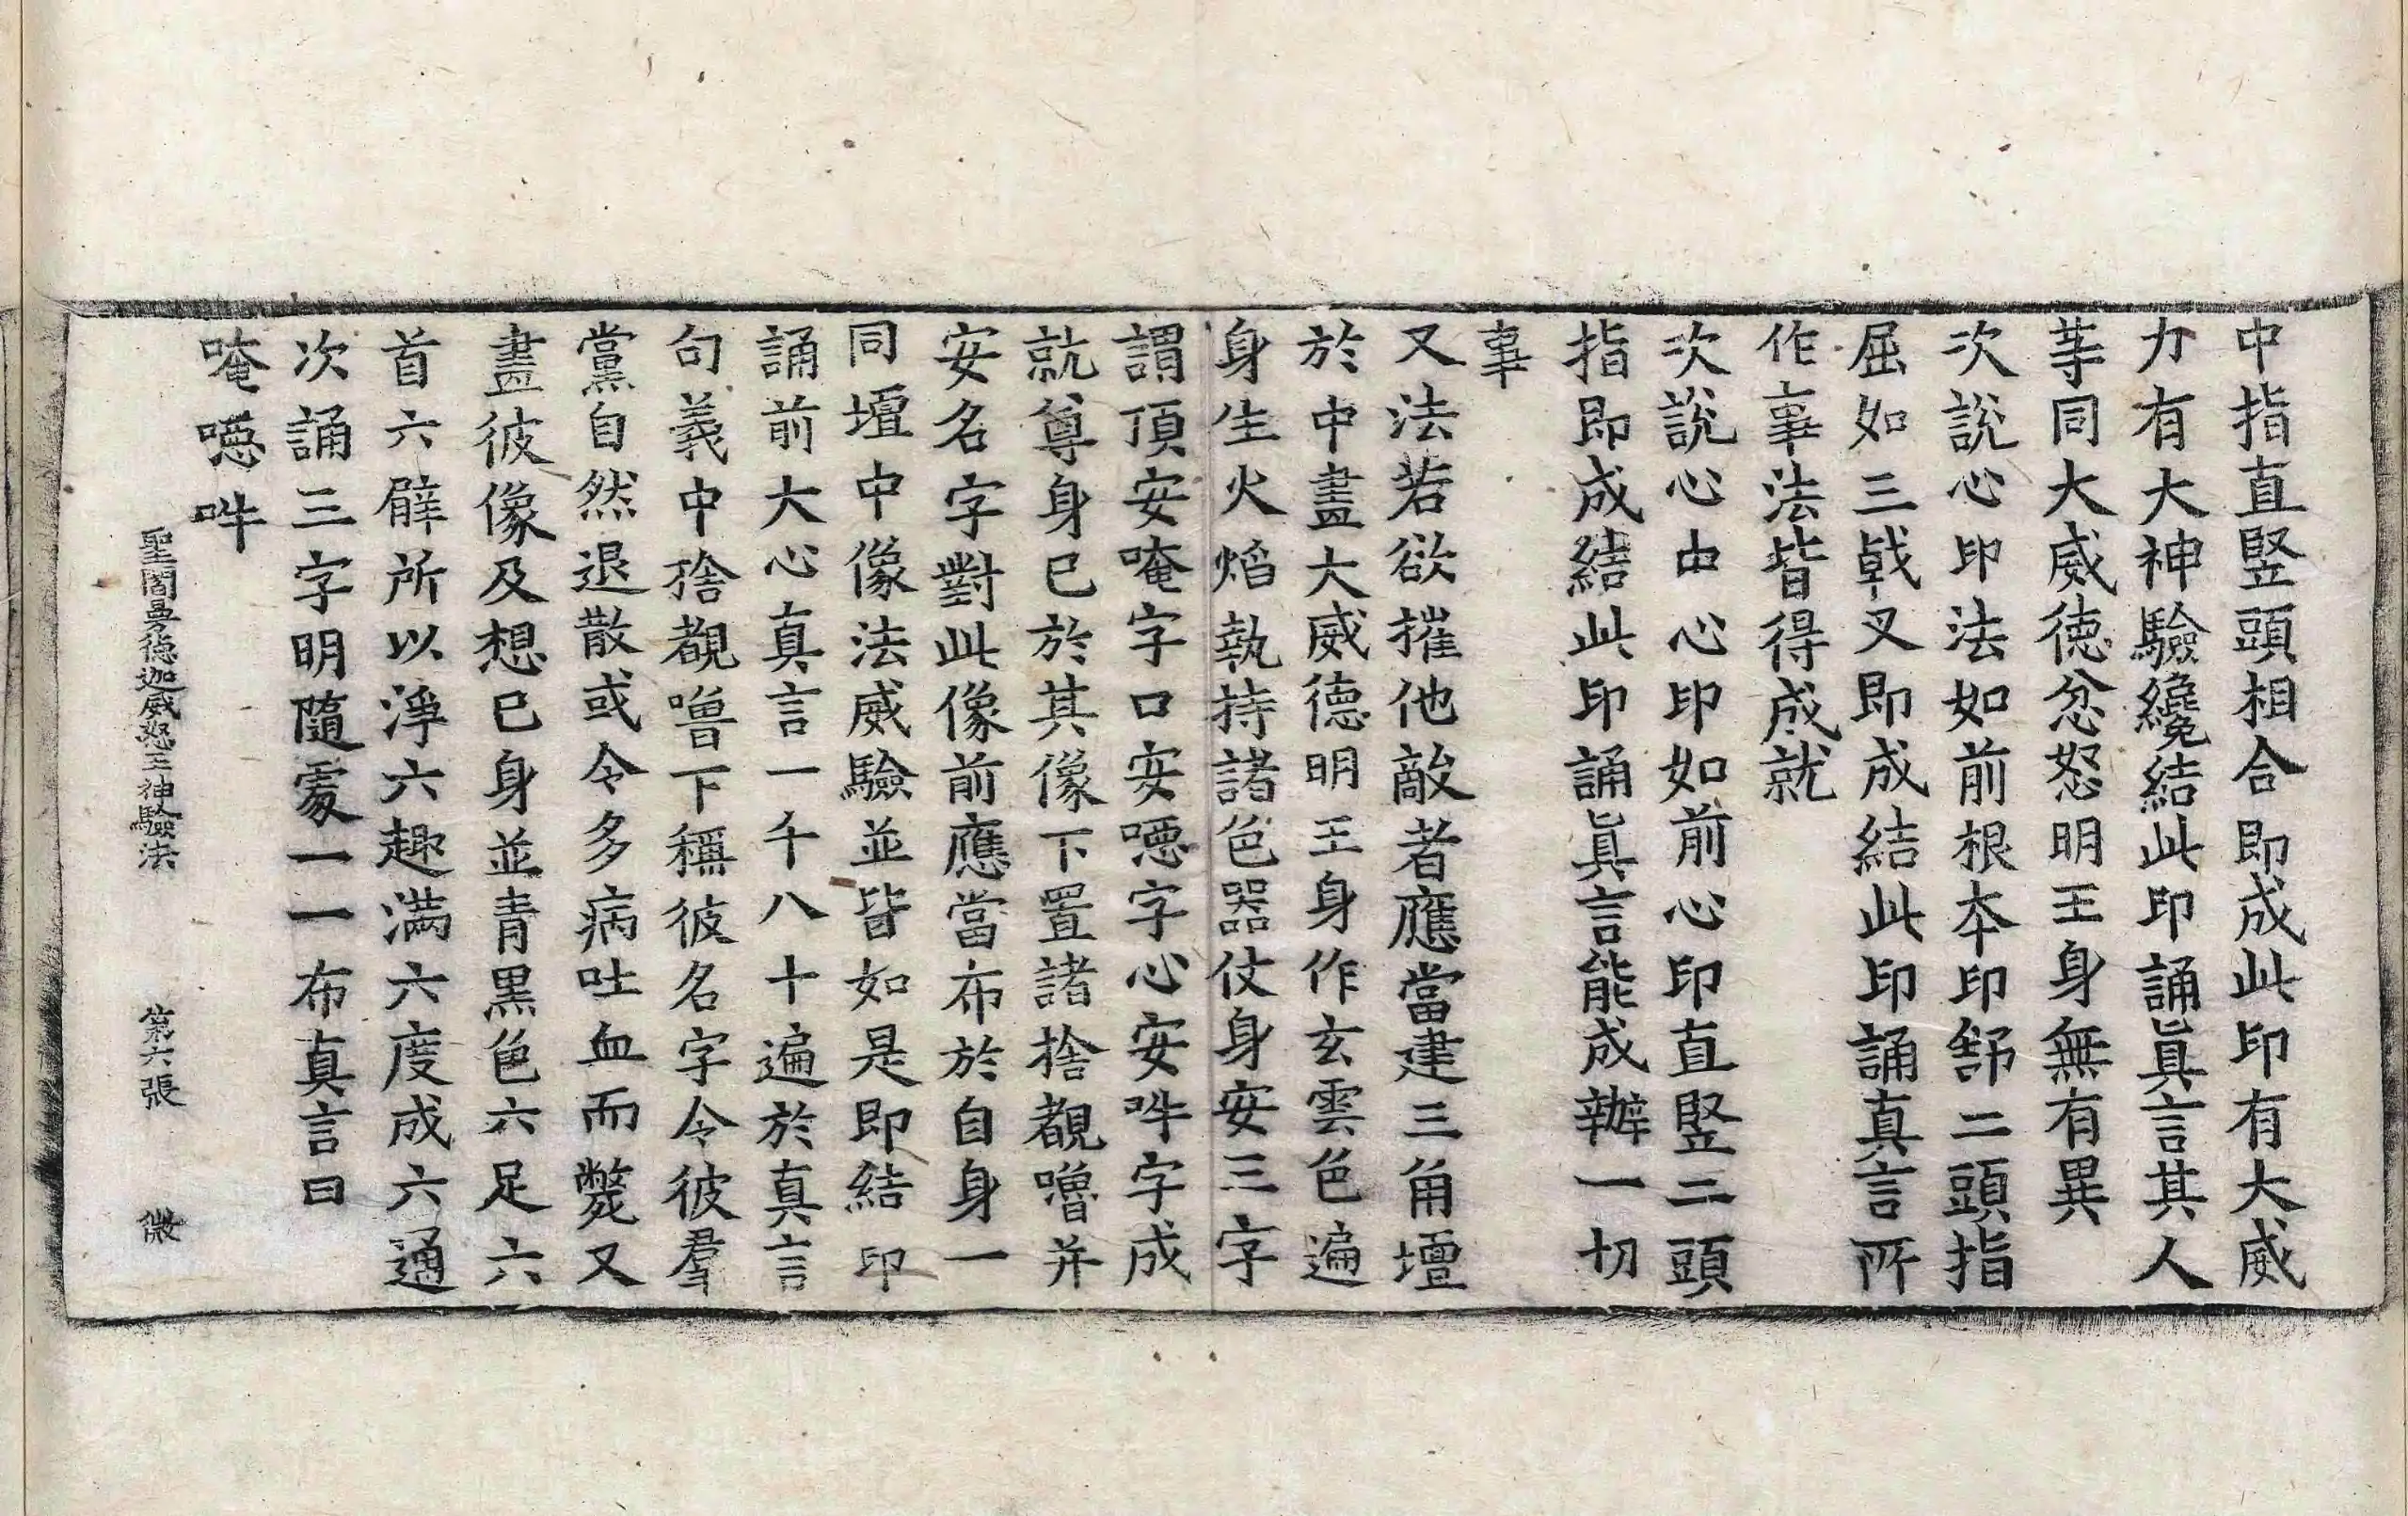 中指直竪頭相合即成此印有大威
力有大神驗纔結此印誦眞言其人
等同大威徳忿怒明王身無有異
次說心印法如前根本印舒二頭指
屈如三戟叉即成結此印誦真言所
作事法皆得成就
次說心中心印如前心印直竪二頭
指即成結此印誦眞言能成辦一切
事
又法若欲摧他敵者應當建三角壇
於中畫大威德明王身作玄雲色遍
身生火焰執持諸色器仗身安三字
謂頂安唵字口安𠺁字心安吽字成
就尊身已於其像下置諸捨覩嚕并
安名字對此像前應當布於自身一
同壇中像法威驗並皆如是即結印
誦前大心真言一千八十遍於真言
句義中捨覩嚕下稱彼名字令彼羣
黨自然退散或令多病吐血而斃又
畫彼像及想已身並青黑色六足六
首六臂所以淨六趣滿六度成六通
次誦三字明隨處一一布真言曰
唵𠺁吽
聖閻曼德迦威怒王神驗法 第六張 微